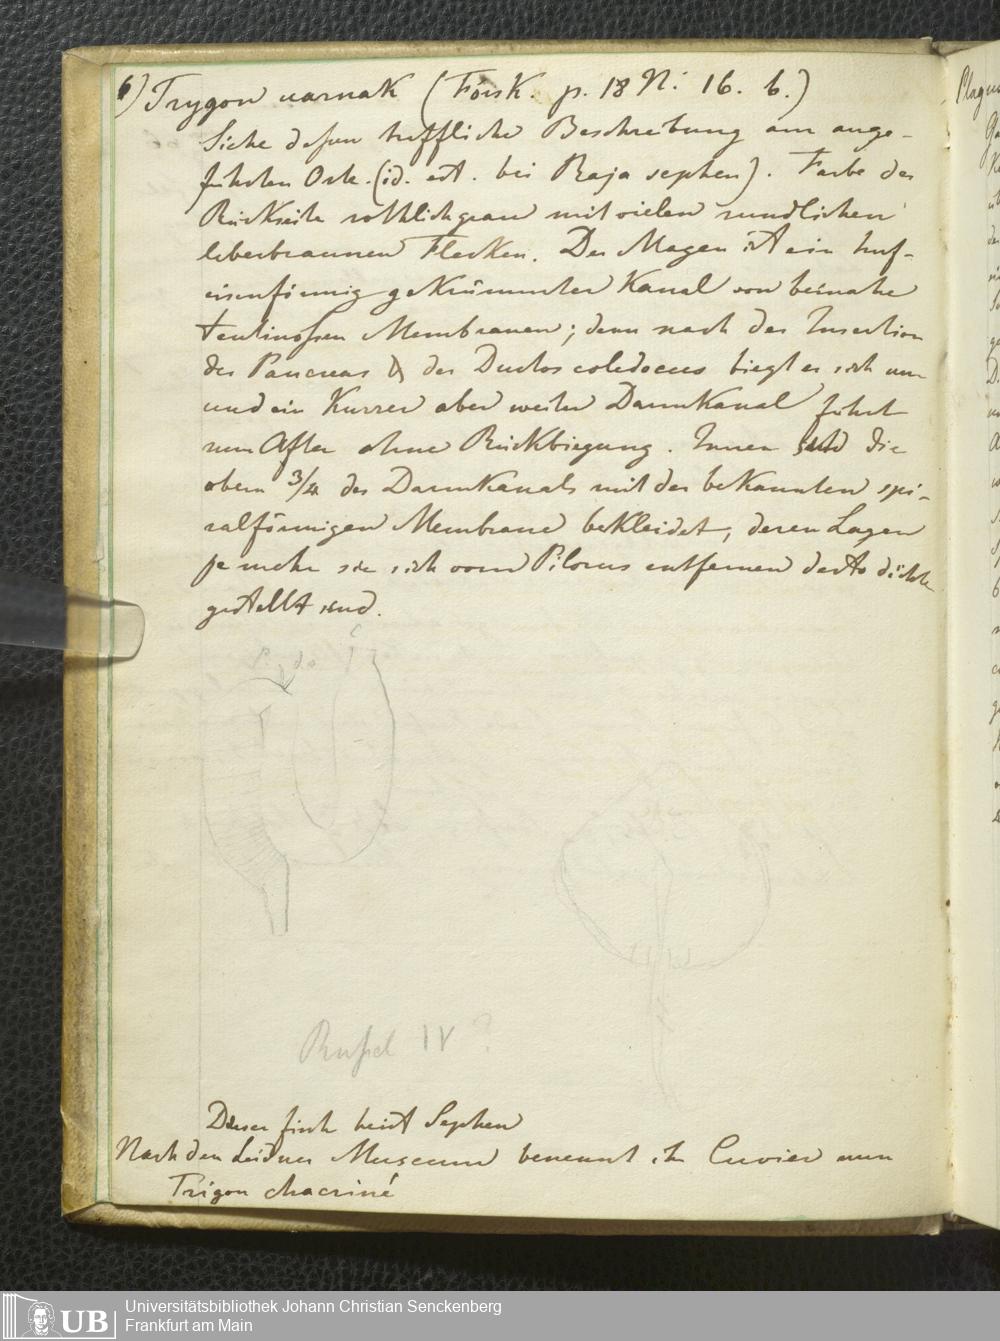 6) Trygon uarnak (Forsk. p. 18 N: 16. b.)
Siehe dessen treffliche Beschreibung am ange-
führten Orte. (id. est. bei Raja sephen). Farbe der
Rückseite röthlichgrau mit vielen rundlichen
leberbraunen Flecken. Der Magen ist ein huf-
eisenförmig gekrümmter Kanal von beinahe
tentinosen Membranen; denn nach der Insertion
des Pancreas & des Ductos coledocus biegt er sich um
und ein kurzer aber weiter Darmkanal führt
zum After ohne Rückbiegung. Innen sind die
obern 3/4 des Darmkanals mit der bekannten spi-
ralförmigen Membrane bekleidet, deren Lagen
je mehr sie sich vom Pilorus entfernen desto dichter
gestellt sind.
P. d.c.
Russel IV?
Dieser fisch heist Sephen
Nach dem Leidner Museum benennt ihn Cuvier nun
Trigon chacriné
Universitätsbibliothek Johann Christian Senckenberg
Frankfurt am Main
UB